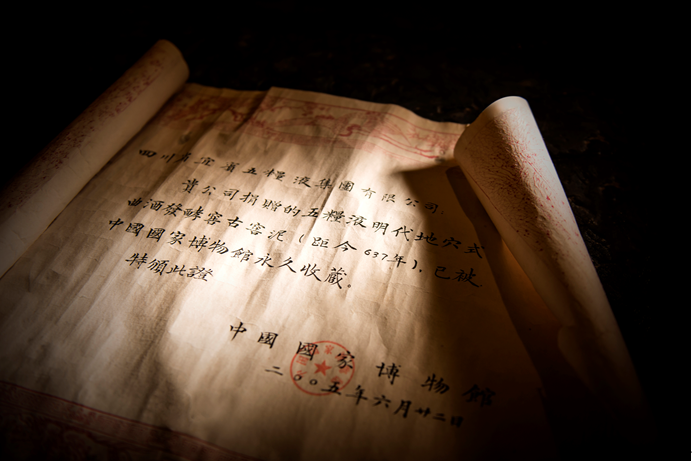 四川省宜賓五糧液集團有限公司:
貴公司捐贈的五糧液明代地穴式
曲酒發酵窖古窖泥（距今637年），已被
中國國家博物館永久收藏。
特頒此證
中國國家博物館
二〇〇五年六月廿二日